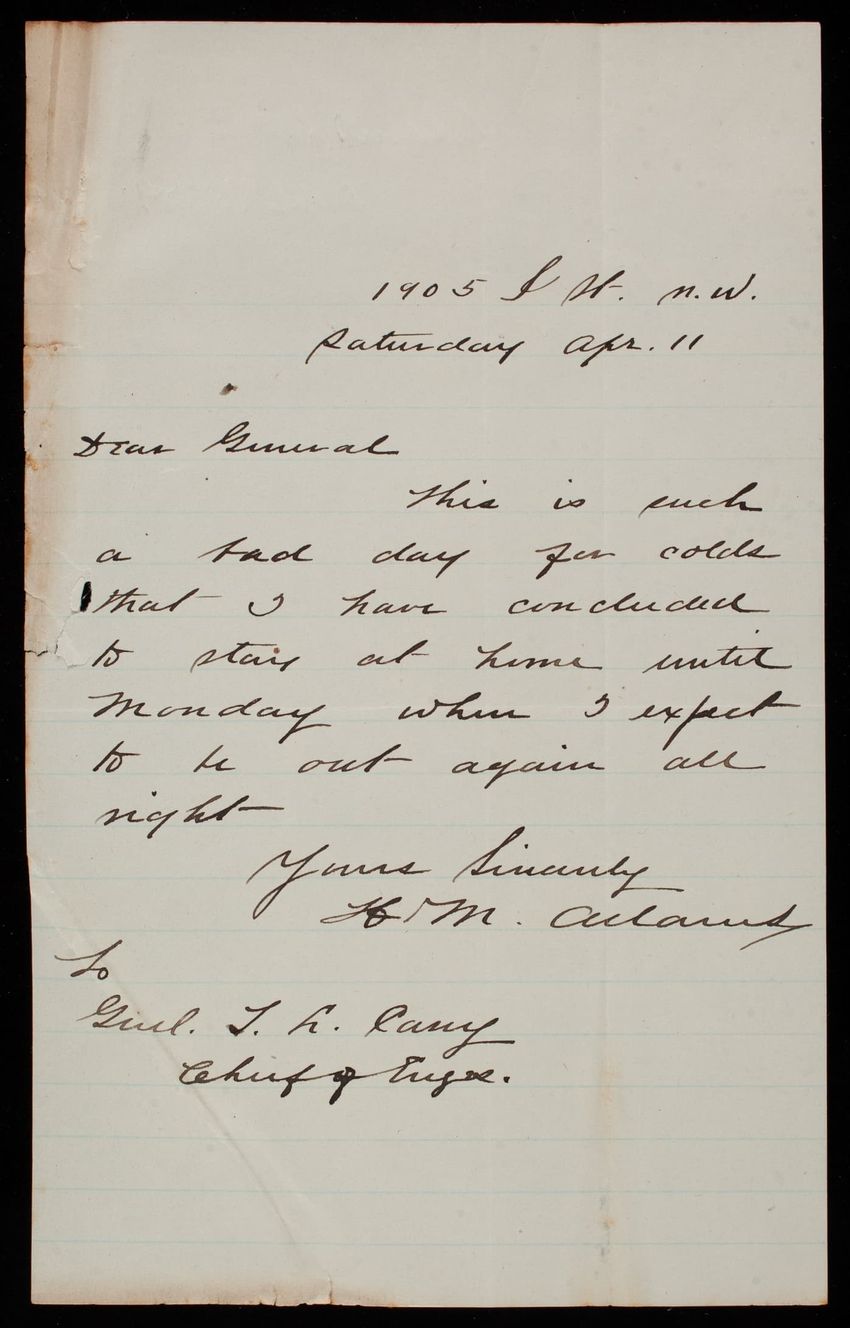 1905 I St. N.W.
Saturday Apr. 11
Dear General
This is such
a bad day for colds
that I have concluded
to stay at home until
Monday when I expect
to be out again all
right
Yours Sincerely
H. M. Adams
To
Genl. T. L. Casey
Chief of Engrs.